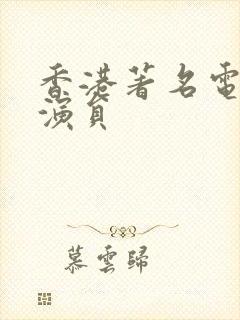 香港著名電
演員
慕雲歸